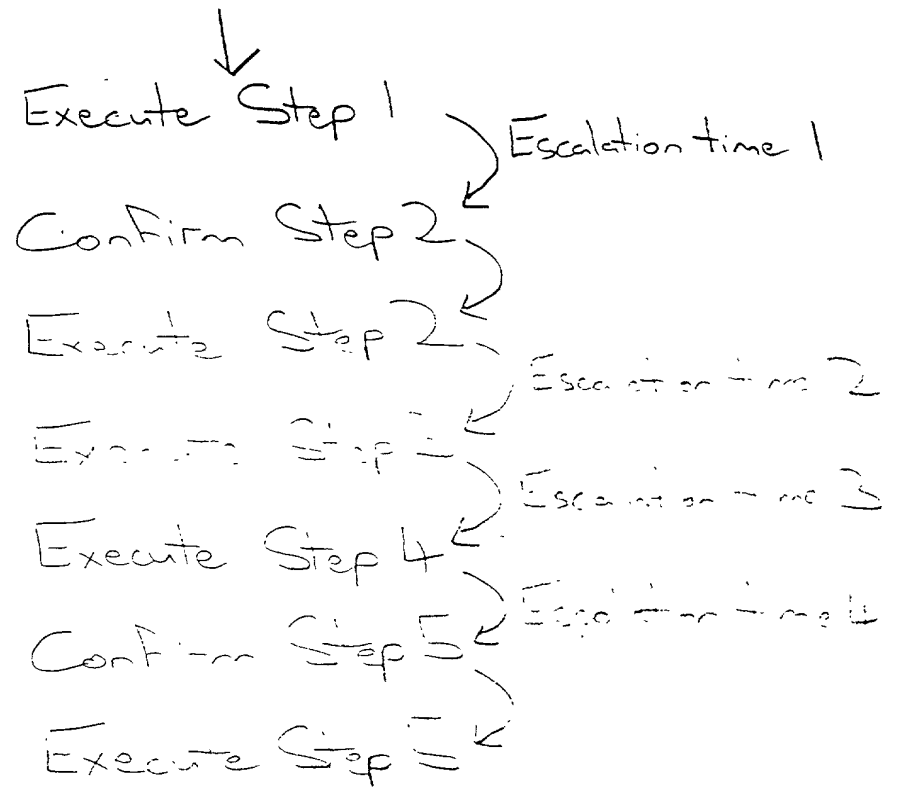 Execute Step 1
Escalation time 1
Confirm Step 2
Execute Step 2
Escalation time 2
Execute Step
Escalation time 3
Execute Step 4
Escalation time 4
Confirm Step 5
Execute Step 5